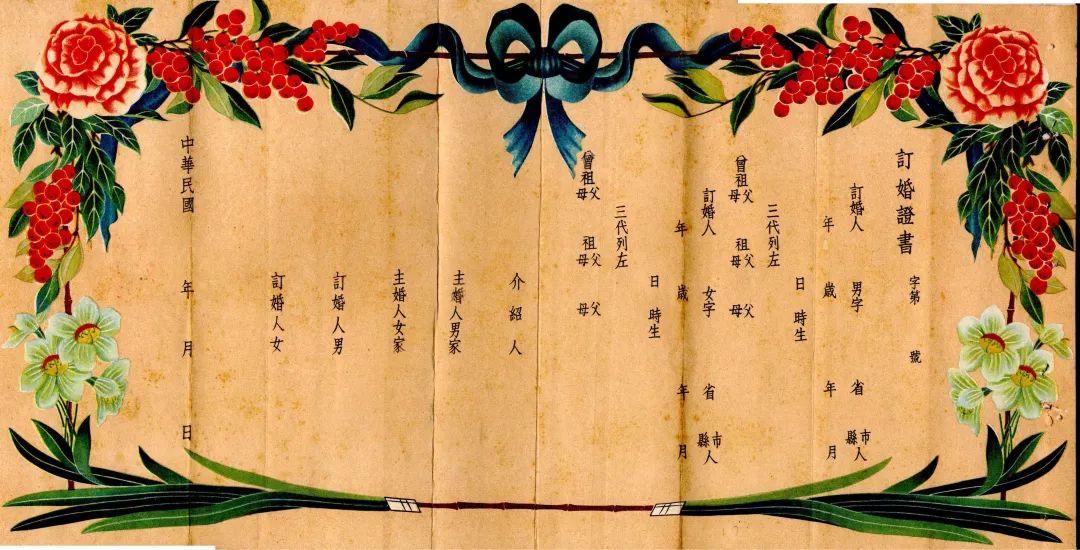 訂婚證書 字第 號
訂婚人 男字 省 市縣人
年 歲 年 月
日 時生
三代列左
曾祖父母 祖父母 父母
訂婚人 女字 省 市縣人
年 歲 年 月
日 時生
三代列左
曾祖父母 祖父母 父母
介紹人
主婚人男家
主婚人女家
訂婚人男
訂婚人女
中華民國 年 月 日